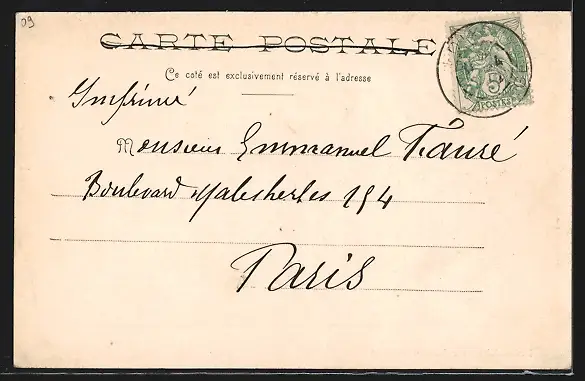 09
CARTE POSTALE
Ce coté est exclusivement réservé à l'adresse
Imprimé
Monsieur Emmanuel Fauré
Boulevard Malesherbes 154
Paris
5
POSTES